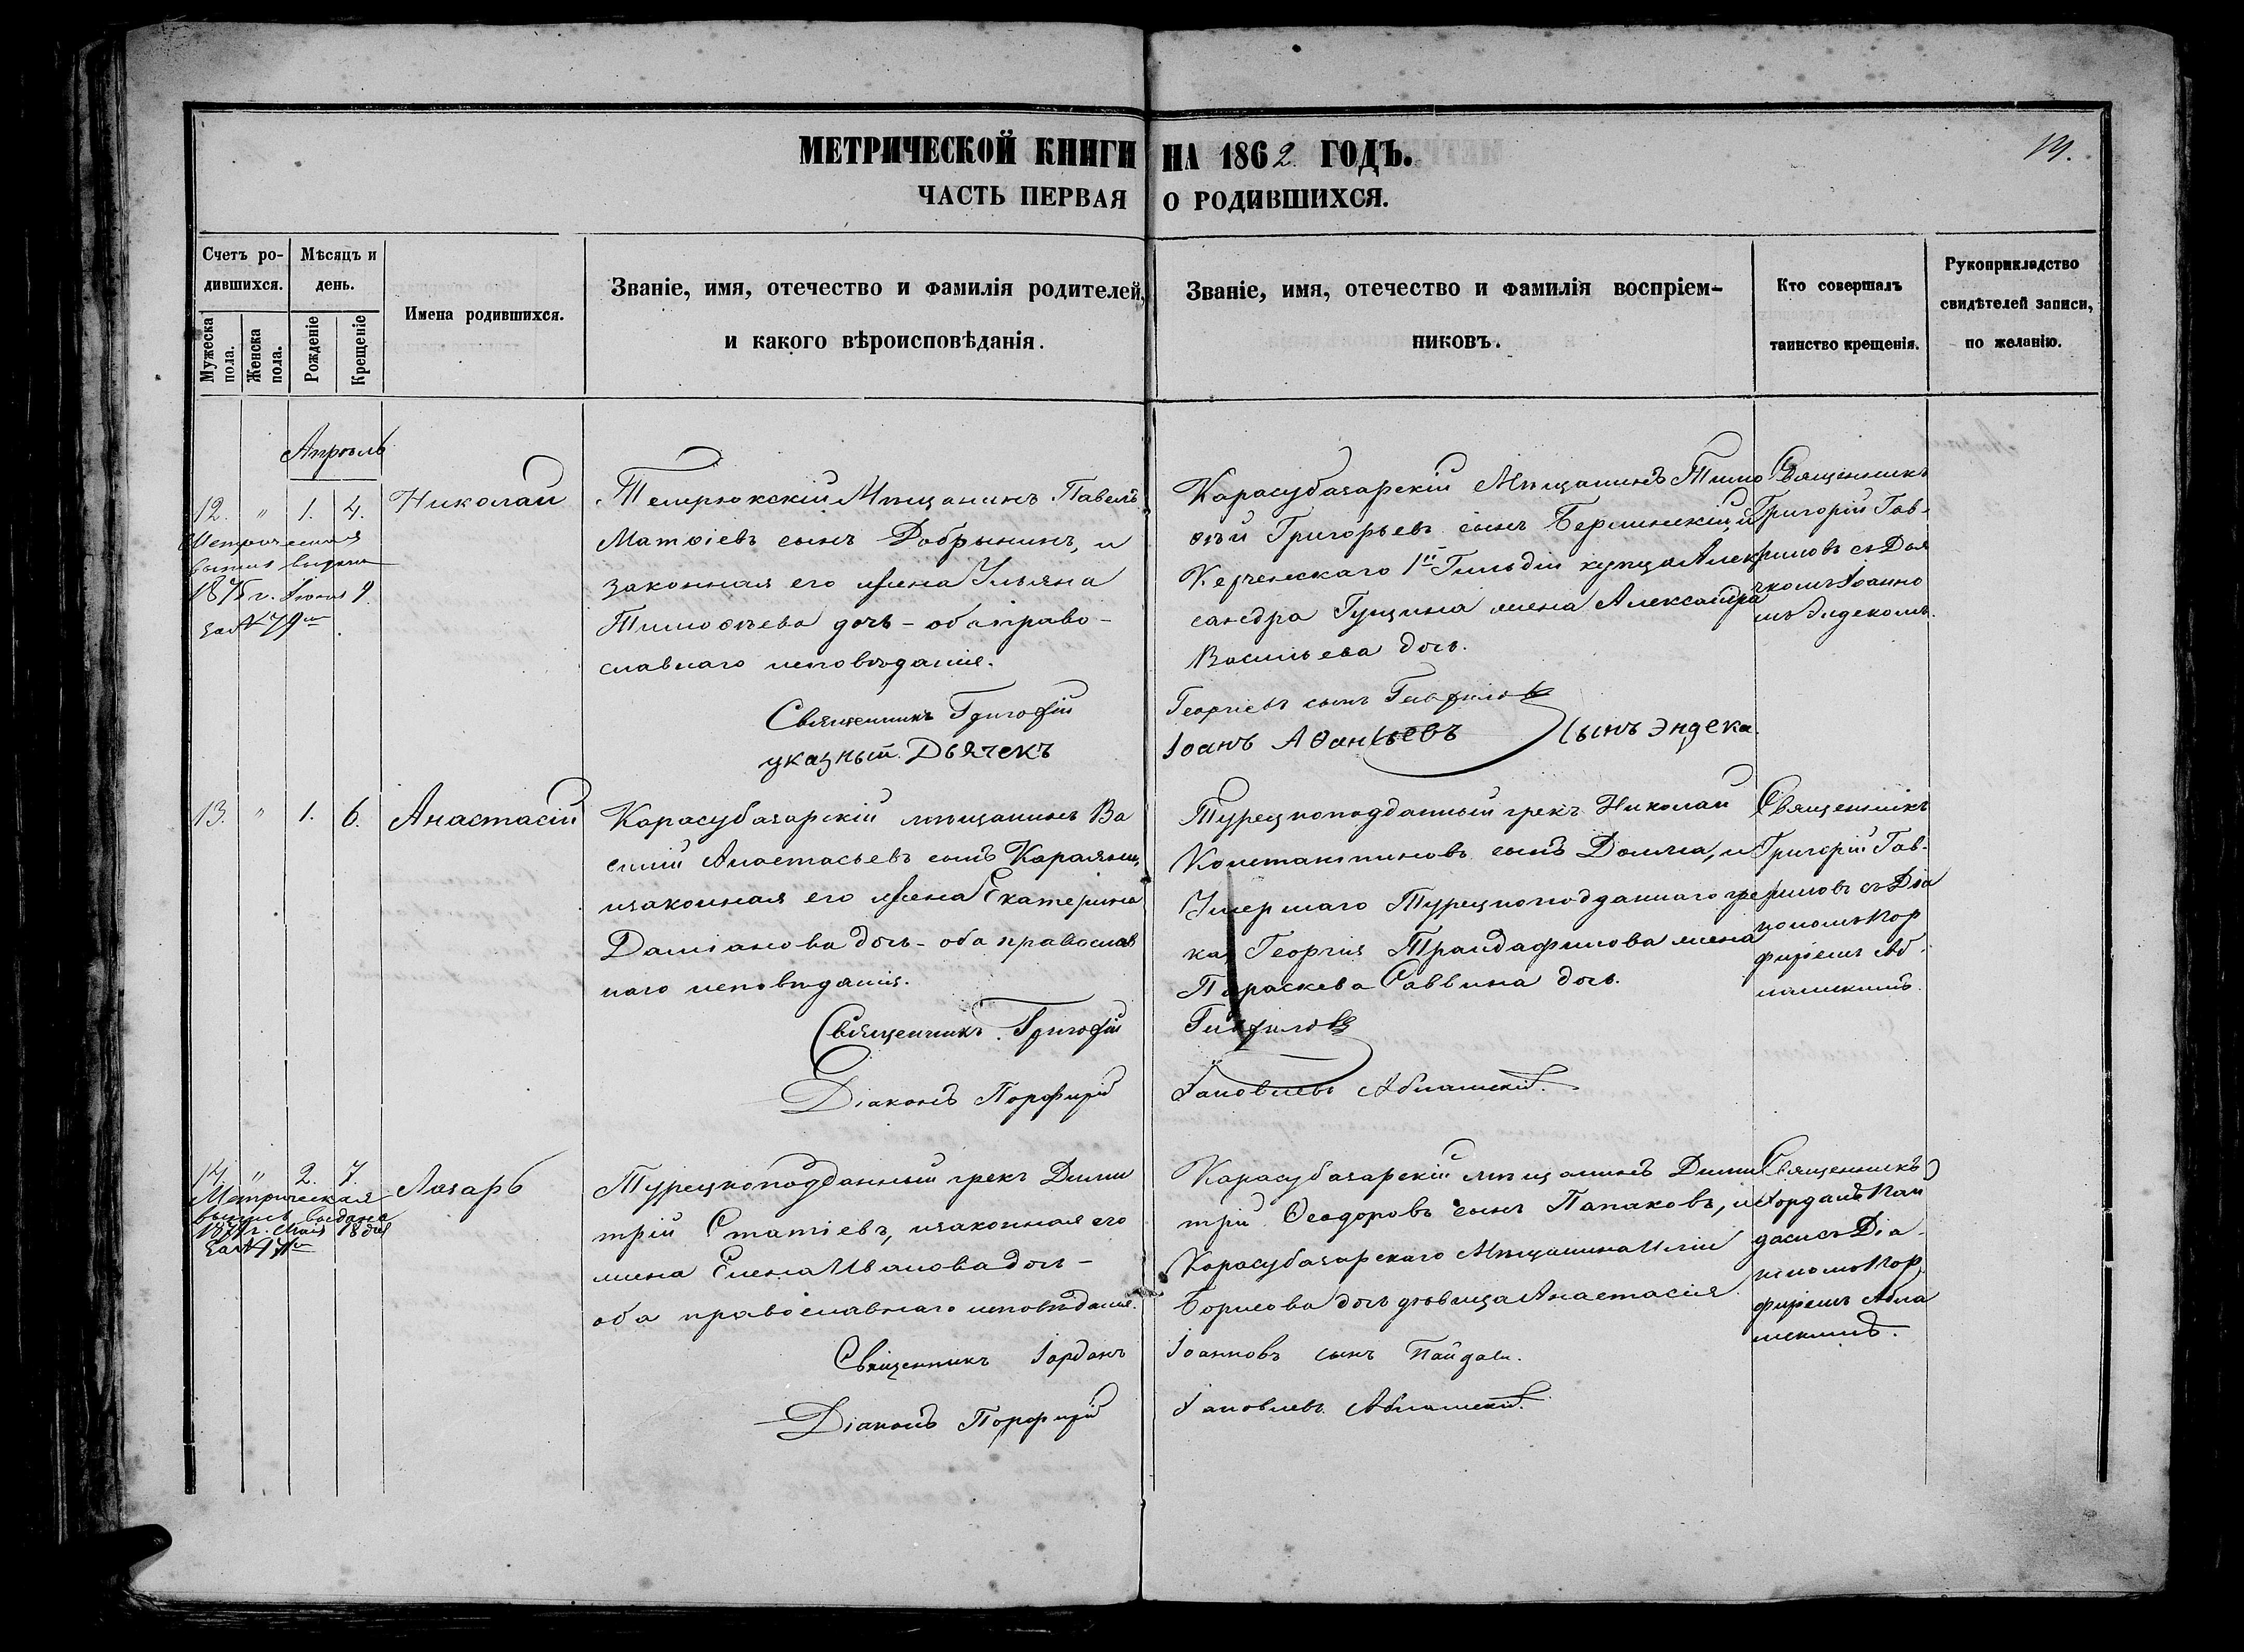 МЕТРИЧЕСКОЙ КНИГИ НА 1862 ГОДЪ.
19.
ЧАСТЬ ПЕРВАЯ О РОДИВШИХСЯ.
Счетъ ро-
дившихся.
Мужеска пола.
Женска пола.
Мѣсяцъ и
день.
Рожденіе
Крещеніе
Имена родившихся.
Званіе, имя, отечество и фамилія родителей,
и какого вѣроисповѣданія.
Званіе, имя, отечество и фамилія воспріем-
никовъ.
Кто совершалъ
таинство крещенія.
Рукоприкладство
свидѣтелей записи,
по желанію.
Апрѣль
12. " 1. 4.
Метрическая
выпись выдана
1875 г. Іюня 9
за №79м
Николай
Темрюкскій Мѣщанинъ Павелъ
Матѳіевъ сынъ Добрынинъ, и
законная его жена Ульяна
Тимоѳѣева дочь - оба право-
славнаго исповѣданія.
Священникъ Григорій
указный Дьячекъ
Карасубазарскій Мѣщанинъ Тимо
ѳѣй Григорьевъ сынъ и
Керченскаго 1й Гильдіи купца Алек
сандра Гущина жена Александра
Васильева дочь.
Георгіевъ сынъ Гавриловъ
Іоанъ Аѳанасьевъ сынъ Эндека.
Священникъ
Григорій Гав-
риловъ съ Дья
чкомъ Іоанно
мъ Эндекомъ.
13. " 1. 6.
Анастасій
Карасубазарскій мѣщанинъ Ва
силій Анастасьевъ сынъ
изаконная его жена Екатерина
Даміанова дочь - оба православ
наго исповѣданія.
Священникъ Григорій
Діаконъ Порфирій
Турецкоподданный грекъ Николай
Константиновъ сынъ Долма, и
Умершаго Турецкоподданнаго гре
ка Георгія Трандафилова жена
Параскева Саввина дочь.
Гавриловъ
Іаковлевъ Аблашскій.
Священникъ
Григорій Гав-
риловъ съ Діа
кономъ Пор
фиріемъ Аб-
лашскимъ.
14. " 2. 7.
Метрическая
выпись выдана
1871 г. Мая 18 дня
за №
Лазарь
Турецкоподданный грекъ Дими
трій Статіевъ, изаконная его
жена Елена Иванова дочь -
оба православнаго исповѣданія.
Священникъ Іорданъ
Діаконъ Порфирій
Карасубазарскій мѣщанинъ Дими
трій Ѳеодоровъ сынъ Папаковъ, и
Карасубазарскаго Мѣщанина Иліи
Борисова дочь дѣвица Анастасія
Іоанновъ сынъ Пайдаси.
Іаковлевъ Аблашскій.
Священникъ
Іорданъ Пай
даси съ Діа-
кономъ Пор
фиріемъ Абла
шскимъ.